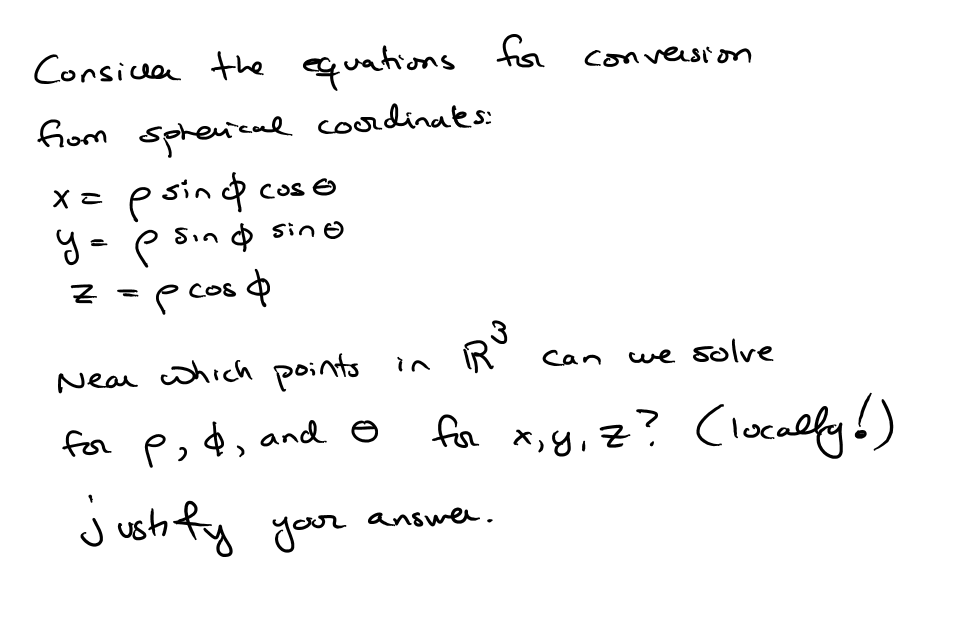 Consider the equations for conversion
from spherical coordinates:
x = ρ sin ϕ cos θ
y = ρ sin ϕ sin θ
z = ρ cos ϕ
Near which points in ℝ³ can we solve
for ρ, ϕ, and θ for x, y, z? (locally!)
justify your answer.